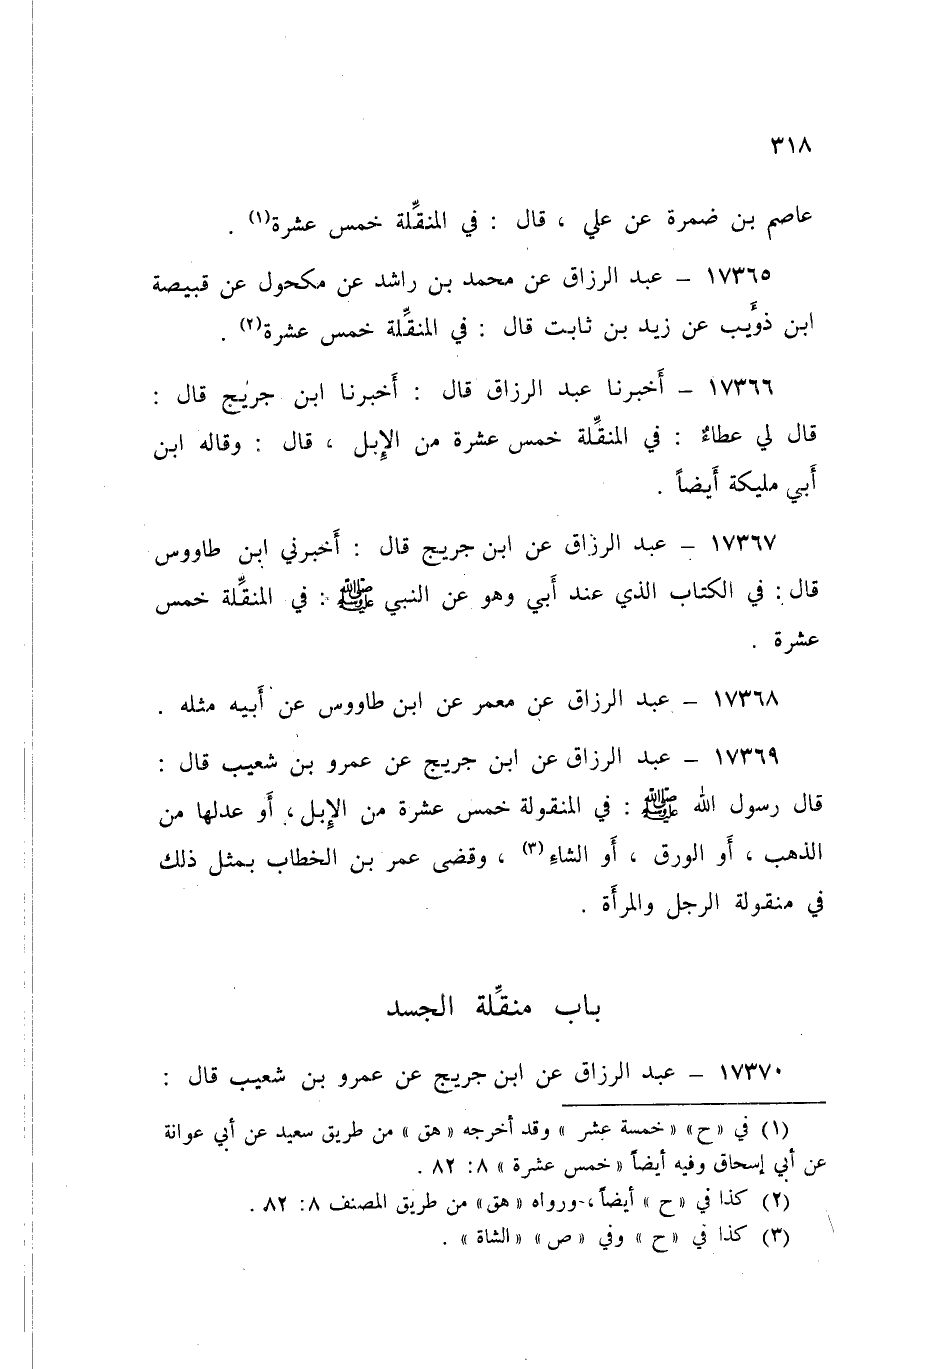 ٣١٨
عاصم بن ضمرة عن علي ، قال : في المنقِّلة خمس عشرة(١) .
١٧٣٦٥ – عبد الرزاق عن محمد بن راشد عن مكحول عن قبيصة
ابن ذؤَيب عن زيد بن ثابت قال : في المنقِّلة خمس عشرة(٢) .
١٧٣٦٦ – أَخبرنا عبد الرزاق قال : أَخبرنا ابن جريج قال :
قال لي عطاءٌ : في المنقِّلة خمس عشرة من الإِبل ، قال : وقاله ابن
أَبي مليكة أَيضاً .
١٧٣٦٧ – عبد الرزاق عن ابن جريج قال : أَخبرني ابن طاووس
قال : في الكتاب الذي عند أَبي وهو عن النبي ﷺ : في المنقِّلة خمس
عشرة .
١٧٣٦٨ – عبد الرزاق عن معمر عن ابن طاووس عن أَبيه مثله .
١٧٣٦٩ – عبد الرزاق عن ابن جريج عن عمرو بن شعيب قال :
قال رسول الله ﷺ : في المنقولة خمس عشرة من الإِبل ، أَو عدلها من
الذهب ، أَو الورق ، أَو الشاء(٣) ، وقضى عمر بن الخطاب بمثل ذلك
في منقولة الرجل والمرأَة .
باب منقِّلة الجسد
١٧٣٧٠ – عبد الرزاق عن ابن جريج عن عمرو بن شعيب قال :
(١) في «ح» «خمسة عشر» وقد أخرجه «هق» من طريق سعيد عن أبي عوانة
عن أبي إسحاق وفيه أيضاً «خمس عشرة» ٨: ٨٢ .
(٢) كذا في «ح» أيضاً ، ورواه «هق» من طريق المصنف ٨: ٨٢ .
(٣) كذا في «ح» وفي «ص» «الشاة» .